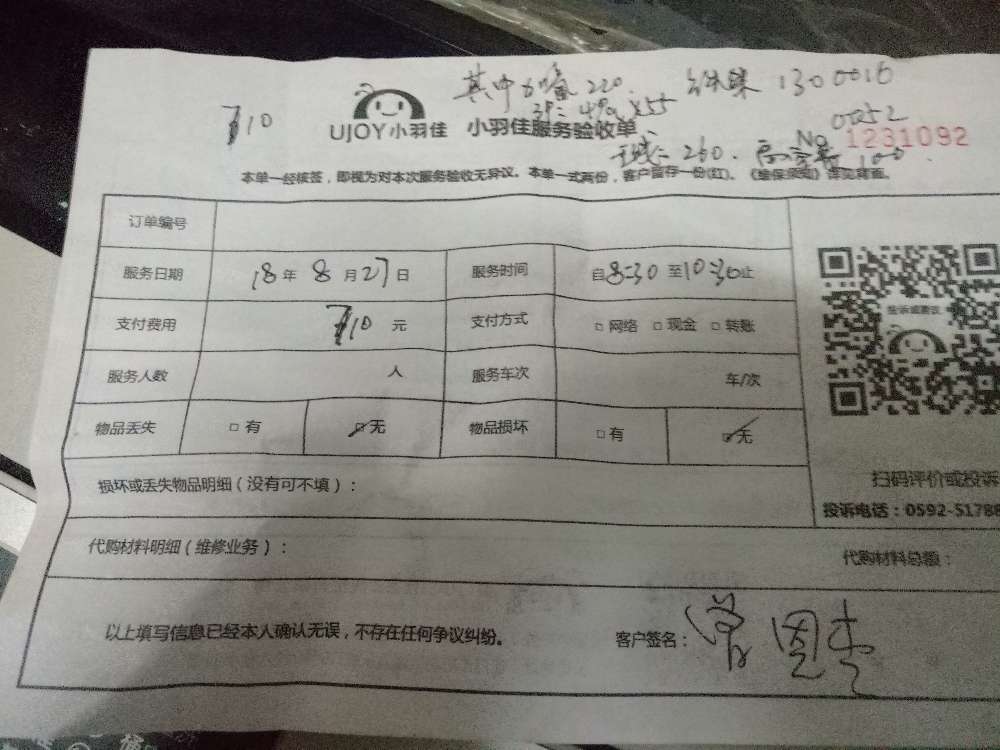 其中 220. 1300016
710
UJOY小羽佳 小羽佳服务验收单
0052
260. No 1231092
本单一经核签，即视为对本次服务验收无异议。本单一式两份，客户留存一份(红)。《维保须知》详见背面。
订单编号
服务日期 18 年 8 月 27 日 服务时间 自8:30 至10:30止
支付费用 710 元 支付方式 □ 网络 □ 现金 □ 转账
投诉或建议
服务人数 人 服务车次 车/次
物品丢失 □ 有 ☑ 无 物品损坏 □ 有 ☑ 无
扫码评价或投诉
损坏或丢失物品明细（没有可不填）：
投诉电话：0592-51788
代购材料明细（维修业务）：
代购材料总额：
以上填写信息已经本人确认无误，不存在任何争议纠纷。
客户签名：